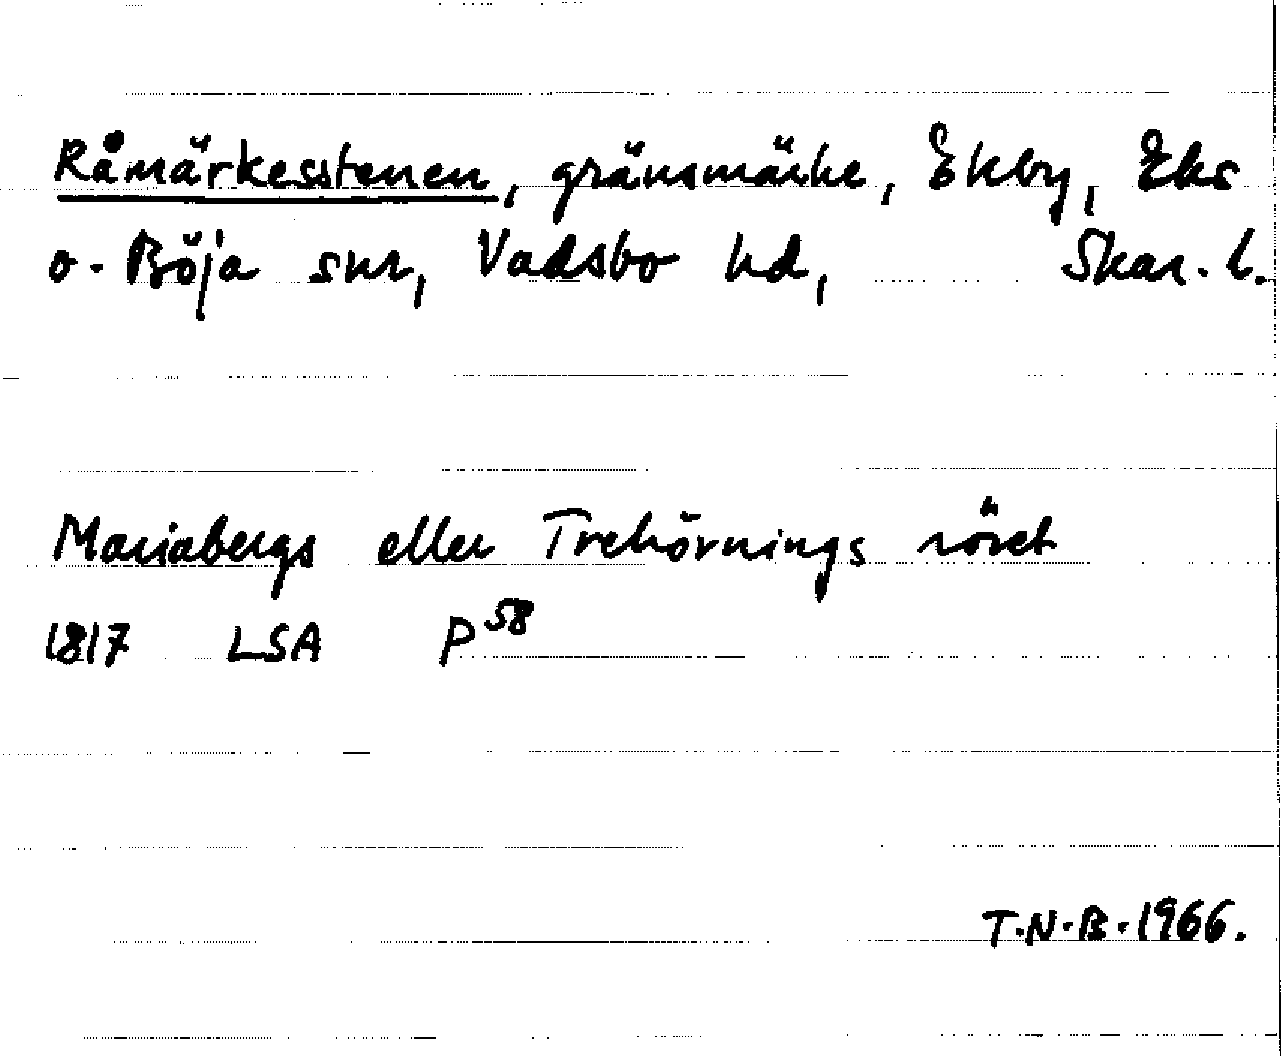 Råmärkesstenen, gränsmärke, Ekby, Eks
o. Böja snr, Vadsbo hd, Skar. l.
Mariabergs eller Trehörnings röret
1817 LSA P 58
T.N.B. 1966.